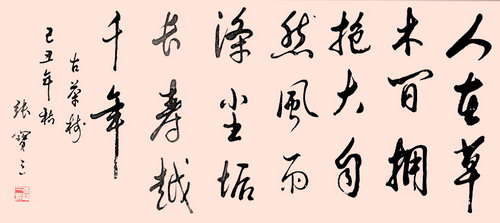 人在草
木间拥
抱大自
然風雨
滌尘垢
长寿越
千年
古茶树
己丑年秋
張寶三